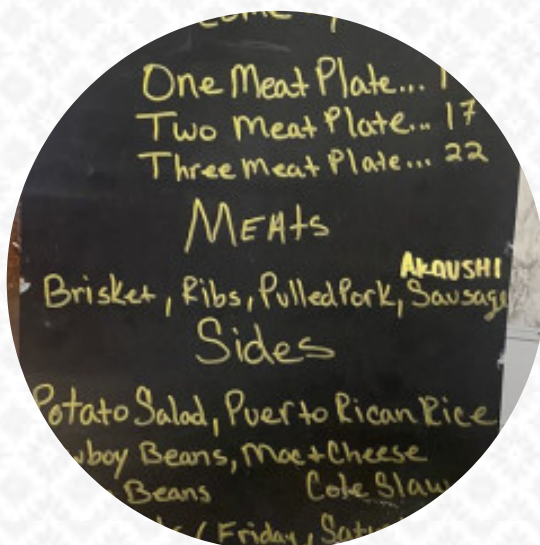 One Meat Plate...
Two Meat Plate... 17
Three Meat Plate... 22
MEAts
AKAUSHI
Brisket, Ribs, Pulled Pork, Sausage
Sides
Potato Salad, Puerto Rican Rice
Beans, Mac + Cheese
Beans Cole Slaw
Friday,